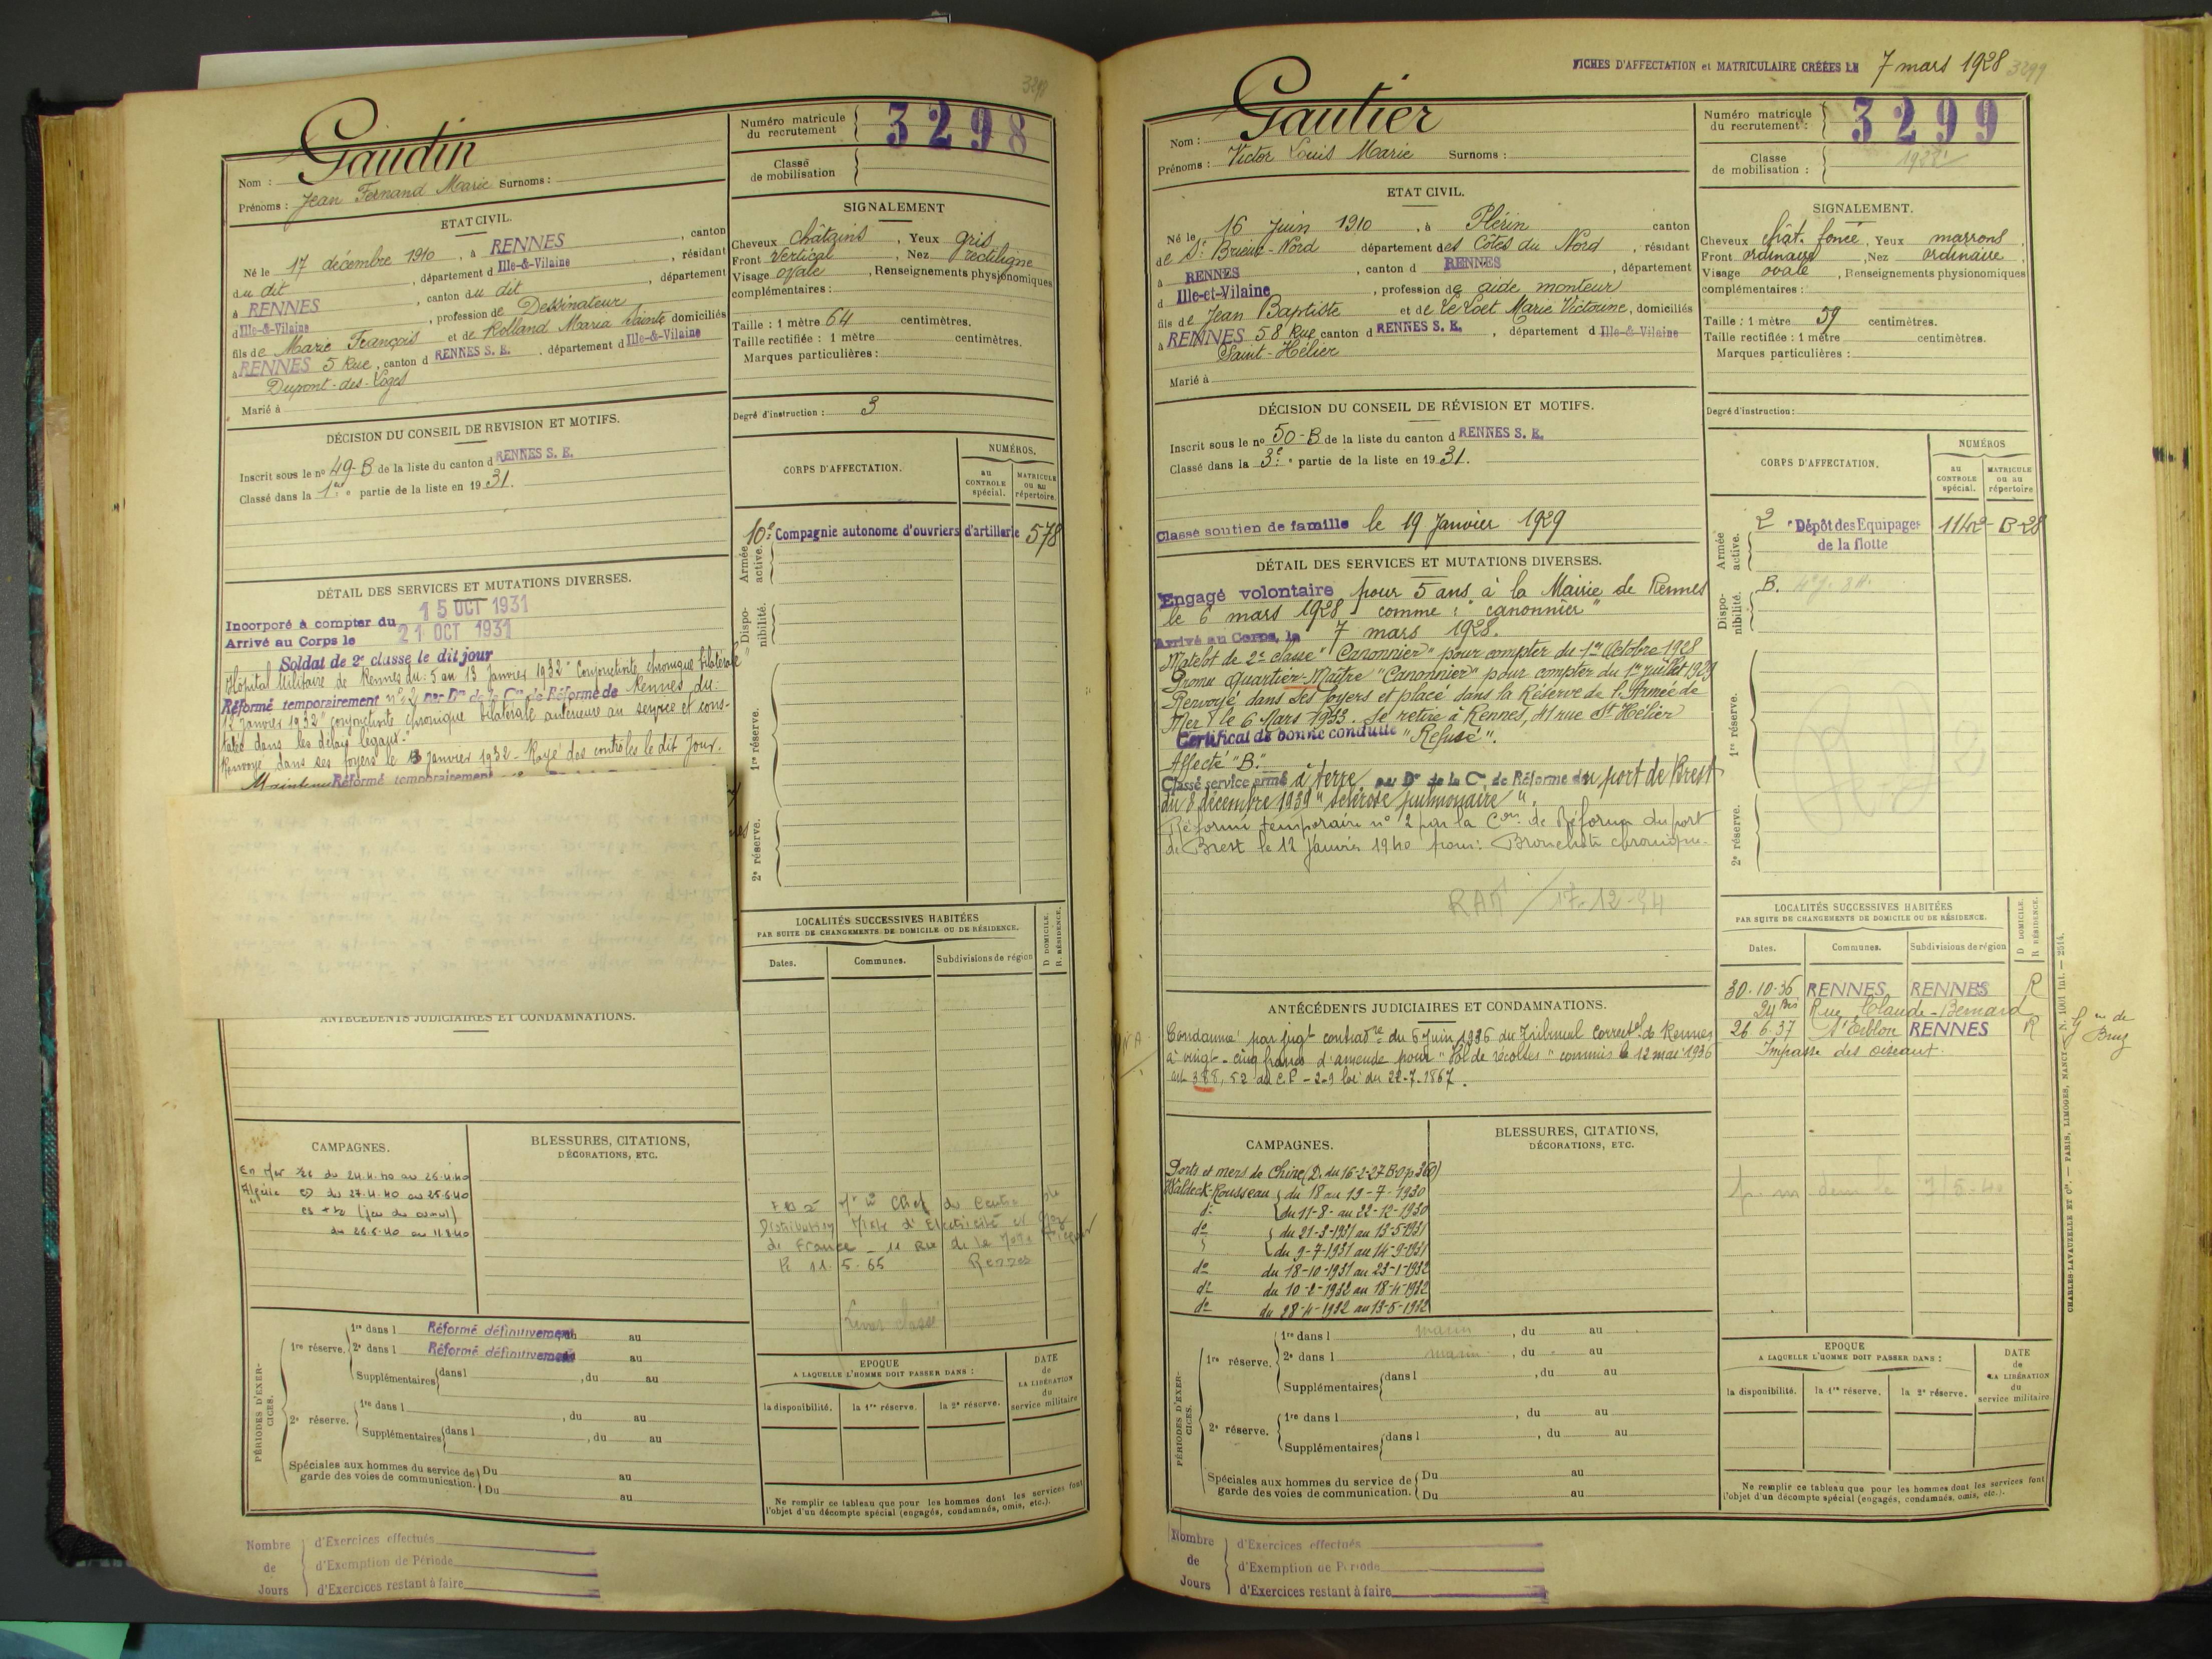 3298
Gaudin
Nom :
Prénoms : Jean Fernand Marie Surnoms :
Numéro matricule du recrutement 3298
Classe de mobilisation
ETAT CIVIL.
Né le 17 décembre 1910, à RENNES, canton
du dit, département d Ille-&-Vilaine, résidant
à RENNES, canton du dit, département
d Ille-&-Vilaine, profession de Dessinateur
fils de Marie François et de Rolland Maria Sainte domiciliés
à RENNES 5 Rue, canton d RENNES S. E., département d Ille-&-Vilaine
Dupont-des-Loges
Marié à
SIGNALEMENT
Cheveux châtains, Yeux gris
Front vertical, Nez rectiligne
Visage ovale, Renseignements physionomiques
complémentaires :
Taille : 1 mètre 64 centimètres.
Taille rectifiée : 1 mètre centimètres.
Marques particulières :
Degré d'instruction : 3
DÉCISION DU CONSEIL DE REVISION ET MOTIFS.
Inscrit sous le n° 49-B de la liste du canton d RENNES S. E.
Classé dans la 1ère partie de la liste en 1931.
CORPS D'AFFECTATION.
NUMÉROS.
au CONTROLE spécial.
MATRICULE ou au répertoire.
Armée active.
10e Compagnie autonome d'ouvriers d'artillerie 578
Disponibilité.
1re réserve.
2e réserve.
DÉTAIL DES SERVICES ET MUTATIONS DIVERSES.
Incorporé à compter du 15 OCT 1931
Arrivé au Corps le 21 OCT 1931
Soldat de 2e classe le dit jour
Hôpital Militaire de Rennes du : 5 au 13 Janvier 1932 "Conjonctivite chronique bilatérale"
Réformé temporairement n° 2 par Don de la Con de Réforme de Rennes du :
12 Janvier 1932 "conjonctivite chronique bilatérale antérieure au service et cons-
tatée dans les délais légaux."
Renvoyé dans ses foyers le 13 Janvier 1932 - Rayé des contrôles le dit Jour.
Maintenu Réformé temporairement
ANTÉCÉDENTS JUDICIAIRES ET CONDAMNATIONS.
LOCALITÉS SUCCESSIVES HABITÉES
PAR SUITE DE CHANGEMENTS DE DOMICILE OU DE RÉSIDENCE.
D DOMICILE.
R RÉSIDENCE.
Dates. Communes. Subdivisions de région
Chef du Centre
Distribution Mixte d'Electricité et Gaz
de France - 11 Rue de la
le 11.5.65 Rennes
CAMPAGNES.
En Mer du 24.4.40 au 26.4.40
Algérie du 27.4.40 au 25.6.40
du 26.6.40 au 11.8.40
BLESSURES, CITATIONS,
DÉCORATIONS, ETC.
PÉRIODES D'EXERCICES.
1re réserve.
1re dans l Réformé définitivement au
2e dans l Réformé définitivement au
Supplémentaires dans l, du au
2e réserve.
1re dans l, du au
Supplémentaires dans l, du au
Spéciales aux hommes du service de
garde des voies de communication.
Du au
Du au
EPOQUE
A LAQUELLE L'HOMME DOIT PASSER DANS :
la disponibilité. la 1re réserve. la 2e réserve.
DATE de LA LIBÉRATION du service militaire
Ne remplir ce tableau que pour les hommes dont les services font
l'objet d'un décompte spécial (engagés, condamnés, omis, etc.).
Nombre de Jours
d'Exercices effectués
d'Exemption de Période
d'Exercices restant à faire
FICHES D'AFFECTATION et MATRICULAIRE CRÉÉES LE 7 mars 1928
3299
Gautier
Nom :
Prénoms : Victor Louis Marie Surnoms :
Numéro matricule du recrutement : 3299
Classe de mobilisation :
ETAT CIVIL.
Né le 16 Juin 1910, à Plérin canton
de St Brieuc-Nord département des Côtes du Nord, résidant
à RENNES, canton d RENNES, département
d Ille-et-Vilaine, profession de aide monteur
fils de Jean Baptiste et de Le Loet Marie Victorine, domiciliés
à RENNES 58 Rue canton d RENNES S. E., département d Ille-&-Vilaine
Saint-Hélier
Marié à
SIGNALEMENT.
Cheveux chât. foncé, Yeux marrons,
Front ordinaire, Nez ordinaire,
Visage ovale, Renseignements physionomiques
complémentaires :
Taille : 1 mètre 59 centimètres.
Taille rectifiée : 1 mètre centimètres.
Marques particulières :
Degré d'instruction :
DÉCISION DU CONSEIL DE RÉVISION ET MOTIFS.
Inscrit sous le no 50-B de la liste du canton d RENNES S. E.
Classé dans la 3e partie de la liste en 1931.
Classé soutien de famille le 19 Janvier 1929
CORPS D'AFFECTATION.
NUMÉROS
au CONTROLE spécial.
MATRICULE ou au répertoire
Armée active.
2e Dépôt des Equipages de la flotte 1142-B-28
Disponibilité.
B.
1re réserve.
2e réserve.
DÉTAIL DES SERVICES ET MUTATIONS DIVERSES.
Engagé volontaire pour 5 ans à la Mairie de Rennes
le 6 mars 1928 comme : "canonnier"
Arrivé au Corps, le 7 mars 1928.
Matelot de 2e classe "Canonnier" pour compter du 1er Octobre 1928
Promu Quartier-Maître "Canonnier" pour compter du 1er juillet 1929
Renvoyé dans ses foyers et placé dans la Réserve de l'Armée de
Mer le 6 Mars 1933. Se retire à Rennes, 41 rue St Hélier
Certificat de bonne conduite "Refusé".
Affecté "B."
Classé service armé à terre par Don de la Con de Réforme du port de Brest
du 8 décembre 1939 "sclérose pulmonaire".
Réformé temporaire n° 2 par la Con de Réforme du port
de Brest le 12 Janvier 1940 pour : Bronchite chronique.
17-12-54
ANTÉCÉDENTS JUDICIAIRES ET CONDAMNATIONS.
Condamné par jugt contradre du 6 Juin 1936 du Tribunal Correctel de Rennes
à vingt-cinq francs d'amende pour "Vol de récoltes" commis le 12 mai 1936
art 388, 52 du C.P - 2-9 loi du 22-7-1867.
LOCALITÉS SUCCESSIVES HABITÉES
PAR SUITE DE CHANGEMENTS DE DOMICILE OU DE RÉSIDENCE.
D DOMICILE.
R RÉSIDENCE.
Dates. Communes. Subdivisions de région
30.10.36 RENNES RENNES R
24 bis Rue Claude-Bernard
26.6.37 St Erblon RENNES R
Impasse des oiseaux.
Gie de Bruz
CAMPAGNES.
Ports et mers de Chine (D. du 16-2-27 B.O p 360)
Waldeck-Rousseau du 18 au 19-7-1930
do du 11-8- au 22-12-1930
do du 21-3-1931 au 13-5-1931
du 9-7-1931 au 14-9-1931
do du 18-10-1931 au 23-1-1932
do du 10-2-1932 au 18-4-1932
do du 28-4-1932 au 13-5-1932
BLESSURES, CITATIONS,
DÉCORATIONS, ETC.
PÉRIODES D'EXERCICES.
1re réserve.
1re dans l marin, du au
2e dans l marin, du au
Supplémentaires dans l, du au
2e réserve.
1re dans l, du au
Supplémentaires dans l, du au
Spéciales aux hommes du service de
garde des voies de communication.
Du au
Du au
EPOQUE
A LAQUELLE L'HOMME DOIT PASSER DANS :
la disponibilité. la 1re réserve. la 2e réserve.
DATE de LA LIBÉRATION du service militaire
Ne remplir ce tableau que pour les hommes dont les services font
l'objet d'un décompte spécial (engagés, condamnés, omis, etc.).
CHARLES-LAVAUZELLE ET Cie. — PARIS, LIMOGES, NANCY
Nombre de Jours
d'Exercices effectués
d'Exemption de Période
d'Exercices restant à faire